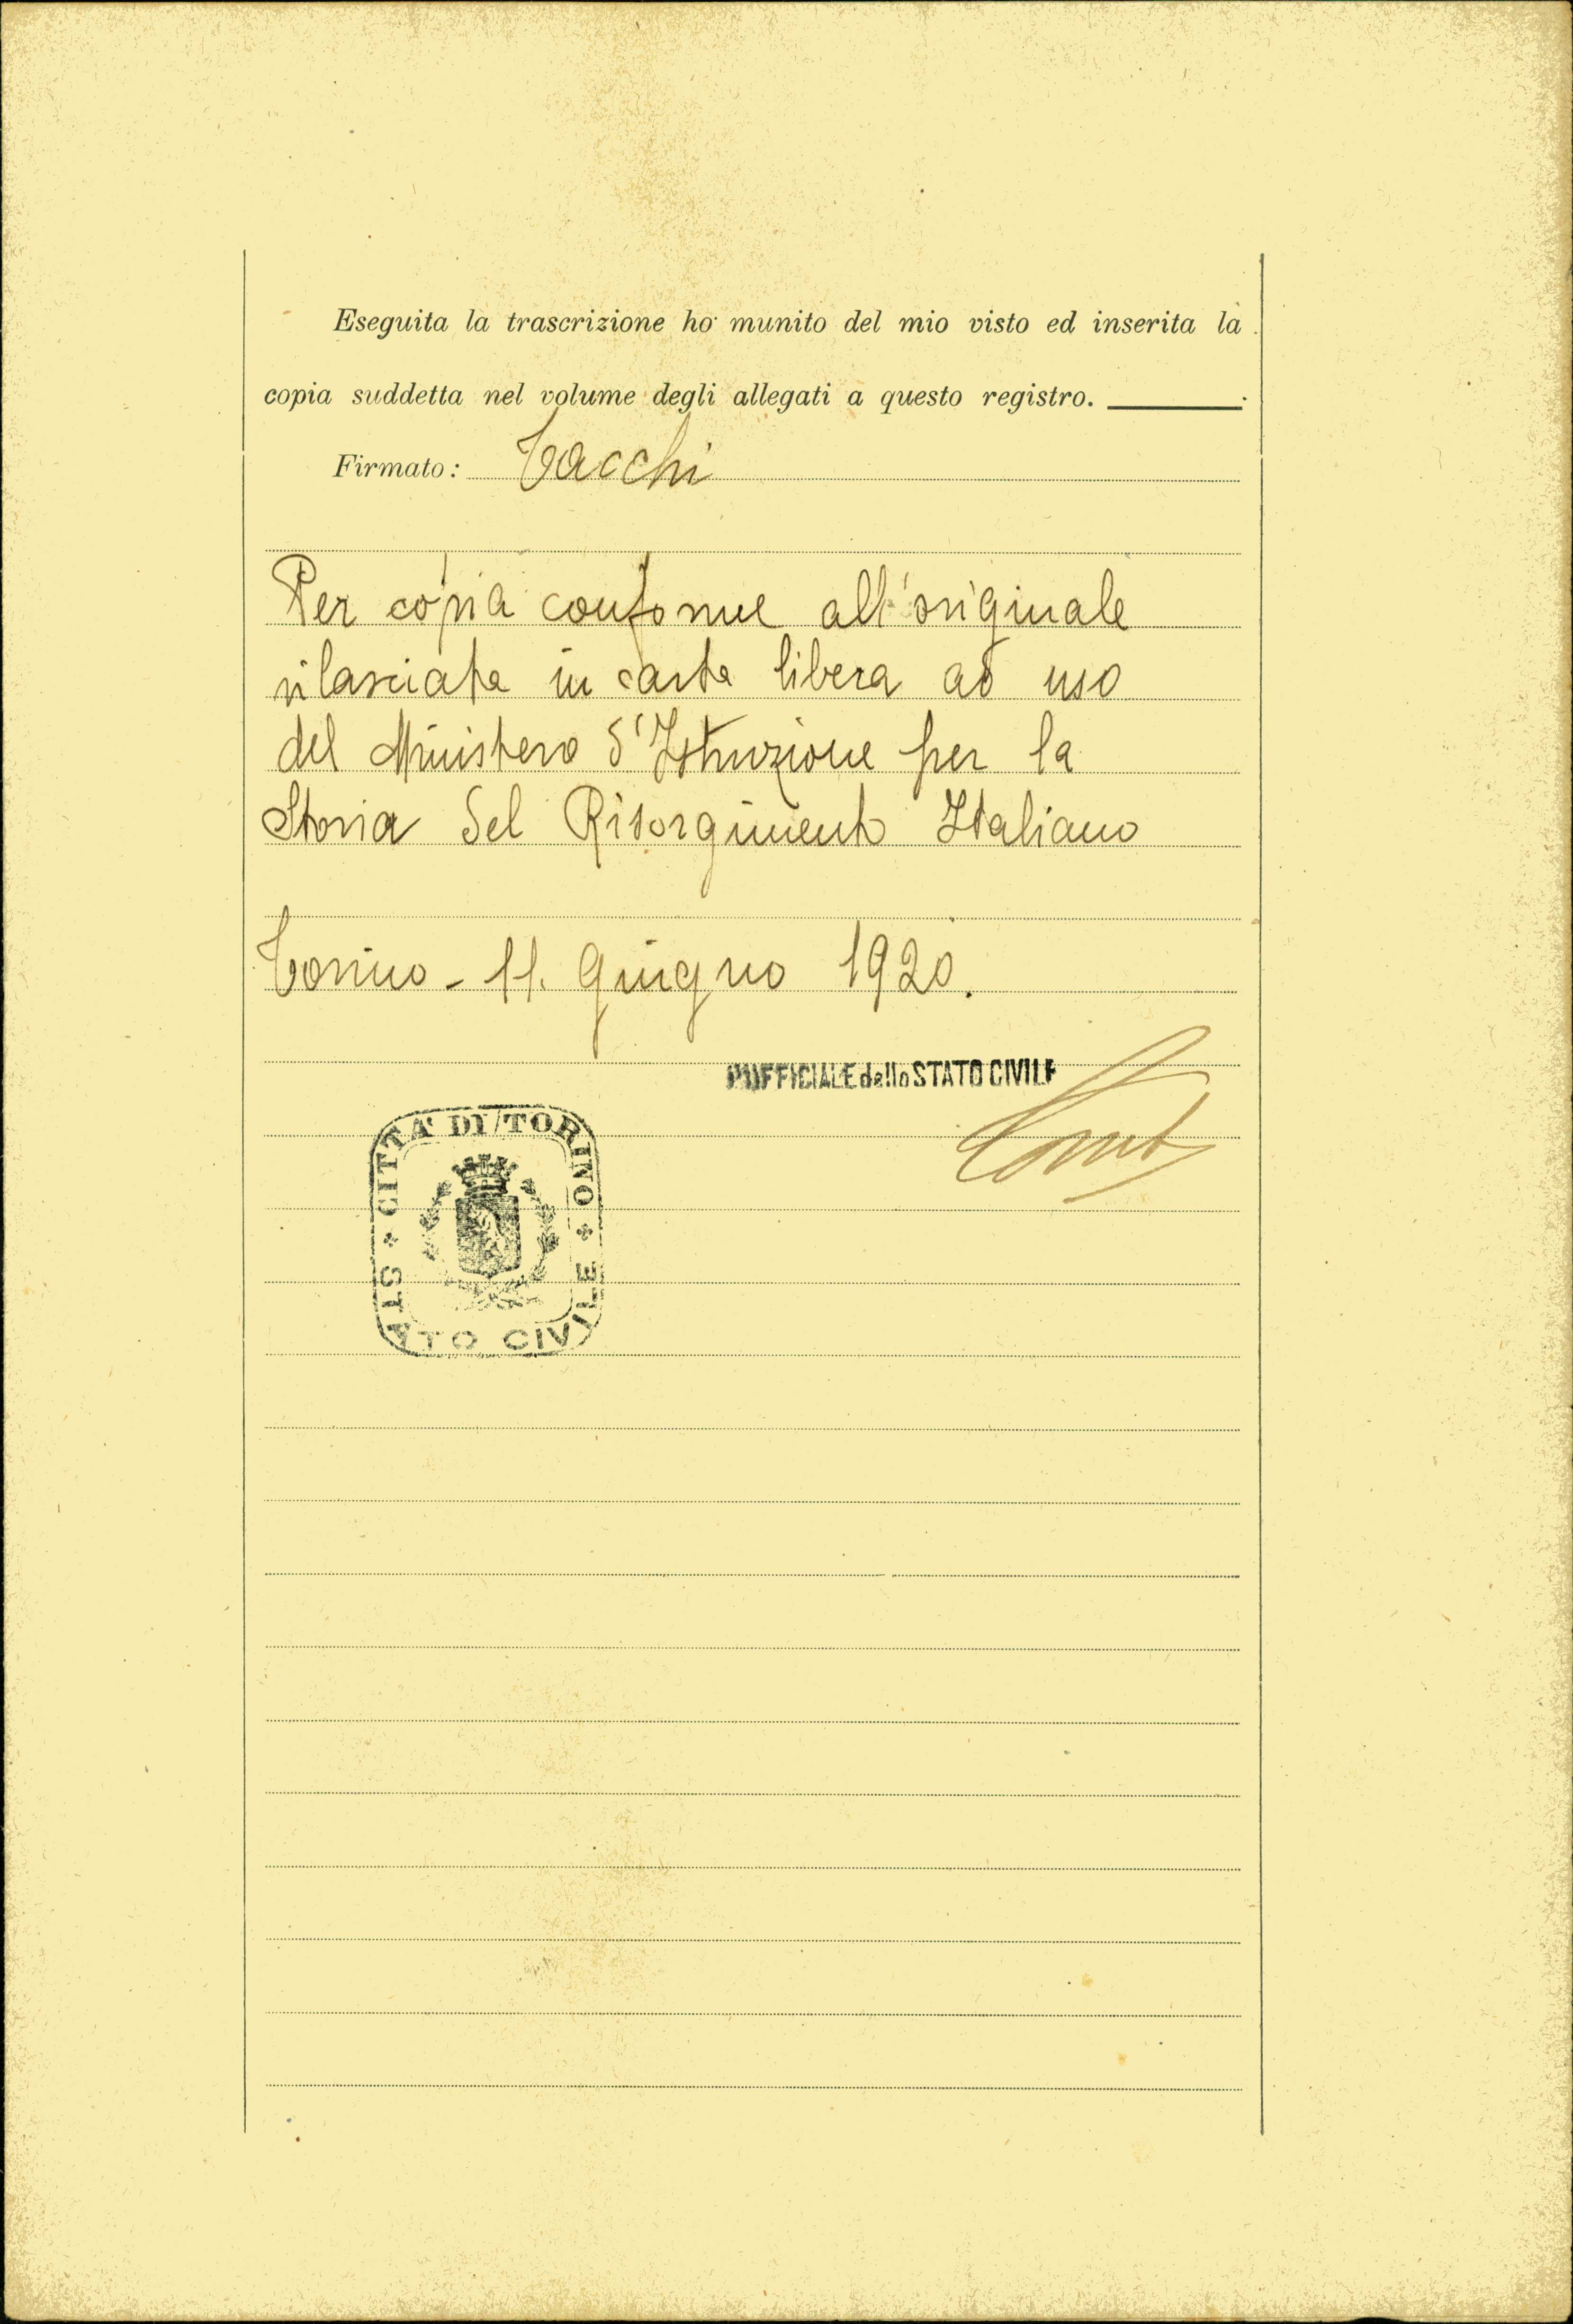 Eseguita la trascrizione ho munito del mio visto ed inserita la
copia suddetta nel volume degli allegati a questo registro.
Firmato: Tacchi
Per copia conforme all'originale
rilasciata in carta libera ad uso
del Ministero d'Istruzione per la
Storia del Risorgimento Italiano
Torino - 11. Giugno 1920.
L'UFFICIALE dello STATO CIVILE
CITTÀ DI TORINO
STATO CIVILE